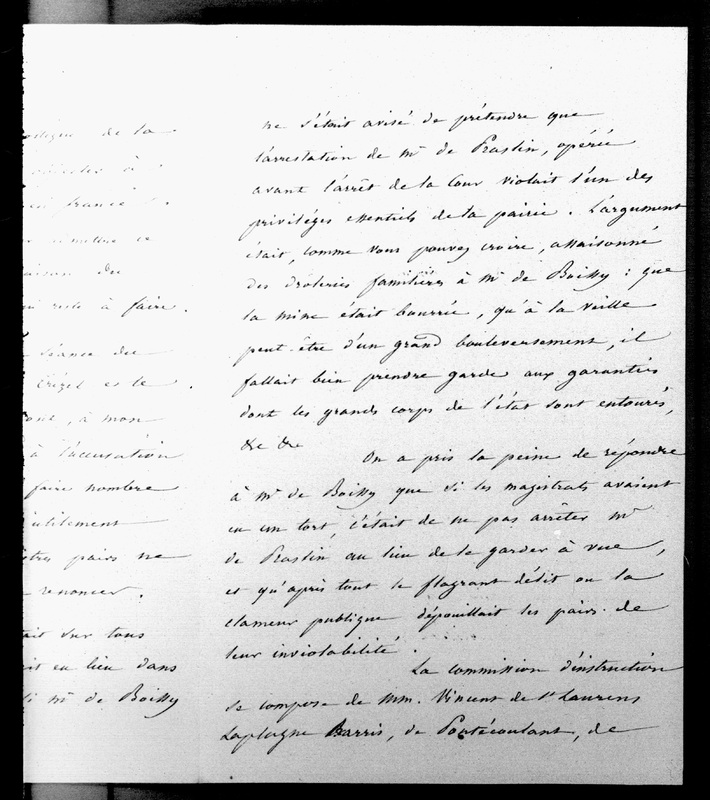 de la
à
france
ce
du
reste à faire.
séance du
et le
, à mon
à l'accusation
faire nombre
utilement
pairs ne
renoncer.
sur tous
eu lieu dans
mr de Boissy
ne s'était avisé de prétendre que
l'arrestation de mr de Praslin, opérée
avant l'arrêt de la Cour violait l'un des
privilèges essentiels de la pairie. L'argument
était, comme vous pouvez croire, assaisonné
des droleries familières à mr de Boissy : que
la mine était bourrée, qu'à la veille
peut-être d'un grand bouleversement, il
fallait bien prendre garde aux garanties
dont les grands corps de l'état sont entourés,
&c &c
On a pris la peine de répondre
à mr de Boissy que si les magistrats avaient
eu un tort, c'était de ne pas arrêter mr
de Praslin au lieu de le garder à vue,
et qu'après tout le flagrant délit ou la
clameur publique dépouillait les pairs de
leur inviolabilité.
La commission d'instruction
se compose de mm. Vincent de St Laurens
Laplagne Barris, de Pontécoulant, de